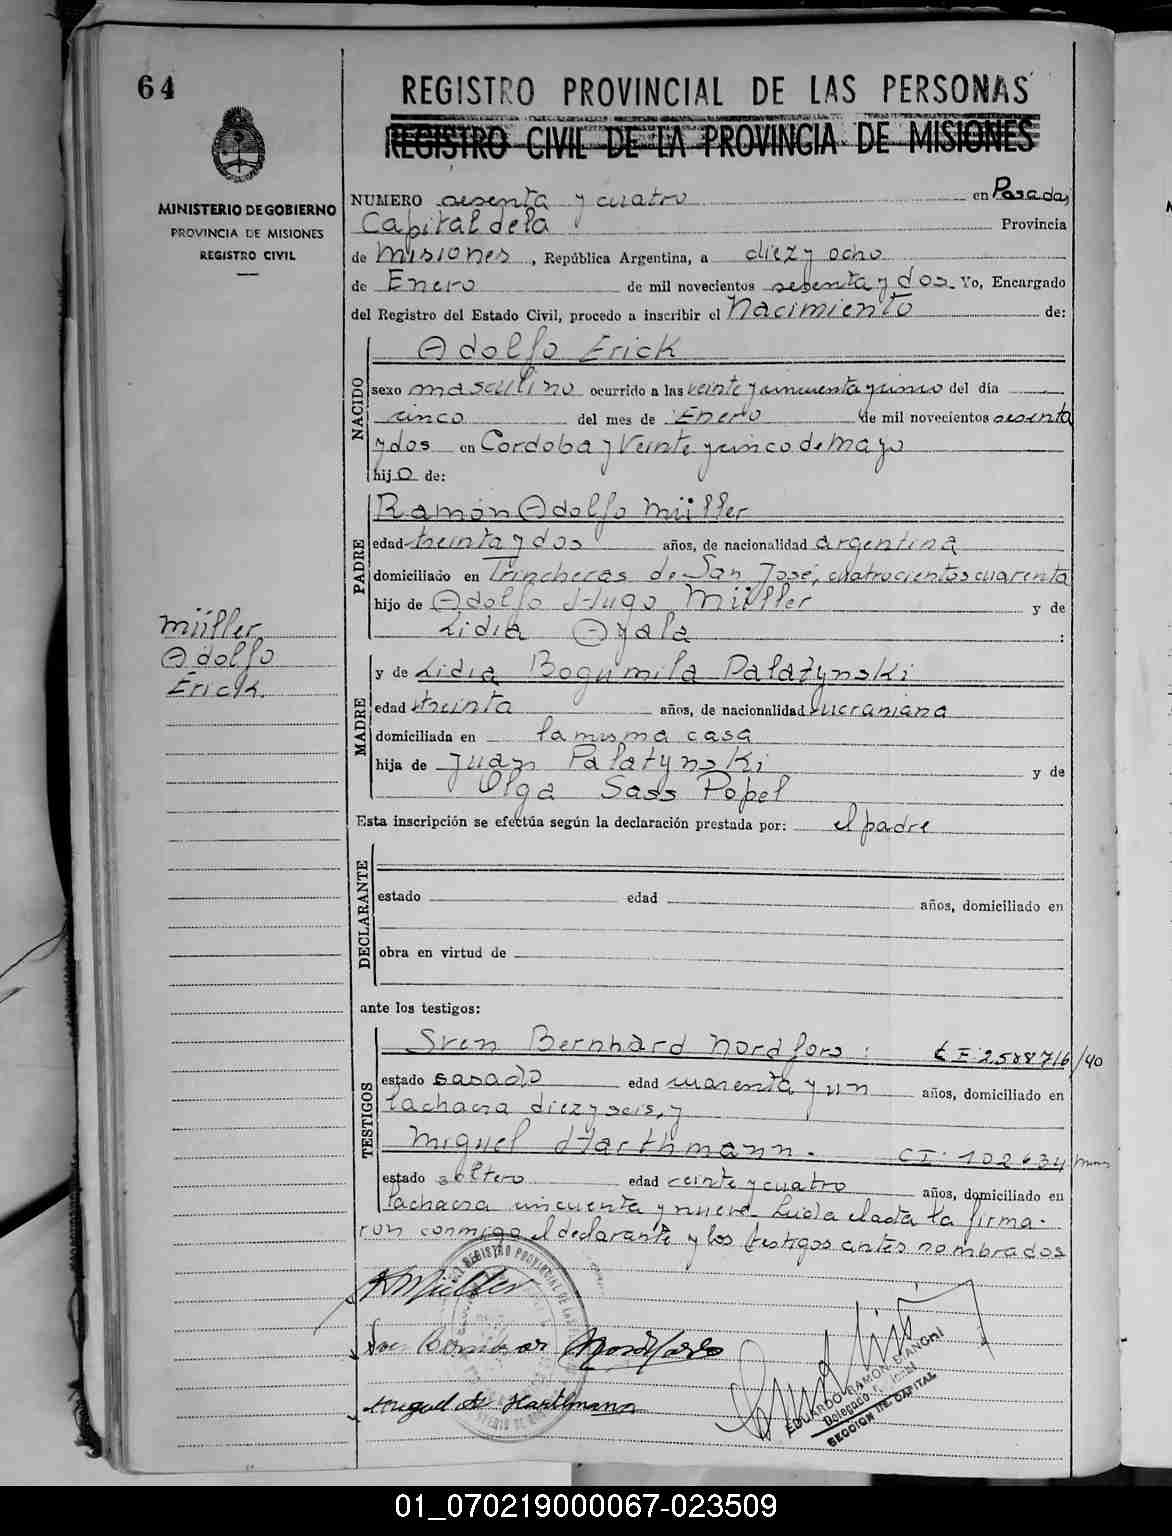 64
REGISTRO PROVINCIAL DE LAS PERSONAS
REGISTRO CIVIL DE LA PROVINCIA DE MISIONES
MINISTERIO DE GOBIERNO
PROVINCIA DE MISIONES
REGISTRO CIVIL
NUMERO sesenta y cuatro en Posadas,
Capital de la Provincia
de Misiones, República Argentina, a diez y ocho
de Enero de mil novecientos sesenta y dos. Yo, Encargado
del Registro del Estado Civil, procedo a inscribir el Nacimiento de:
NACIDO
Adolfo Erick
sexo masculino ocurrido a las veinte y cincuenta y cinco del día
cinco del mes de Enero de mil novecientos sesenta
y dos en Cordoba y Veinte y cinco de Mayo
hijo de:
PADRE
Ramón Adolfo Müller
edad treinta y dos años, de nacionalidad argentina
domiciliado en Trincheras de San José, cuatrocientos cuarenta
hijo de Adolfo Hugo Müller y de
Lidia Ayala :
Müller
Adolfo
Erick.
MADRE
y de Lidia Bogumila Palatynski
edad treinta años, de nacionalidad ucraniana
domiciliada en la misma casa
hija de Juan Palatynski y de
Olga Sass Popel
Esta inscripción se efectúa según la declaración prestada por: el padre
DECLARANTE
estado edad años, domiciliado en
obra en virtud de
ante los testigos:
TESTIGOS
Sven Bernhard Nordfors: C I: 2588716/40
estado casado edad cuarenta y un años, domiciliado en
la chacra diez y seis, y
Miguel Harthmann. C I: 102634
estado soltero edad veinte y cuatro años, domiciliado en
la chacra cincuenta y nueve. Leida el acta la firma-
ron conmigo el declarante y los testigos antes nombrados
Müller
Nordfors
Miguel Harthmann
EDUARDO RAMON D'ANGHI
Delegado
SECCION 1ra. CAPITAL
01_070219000067-023509